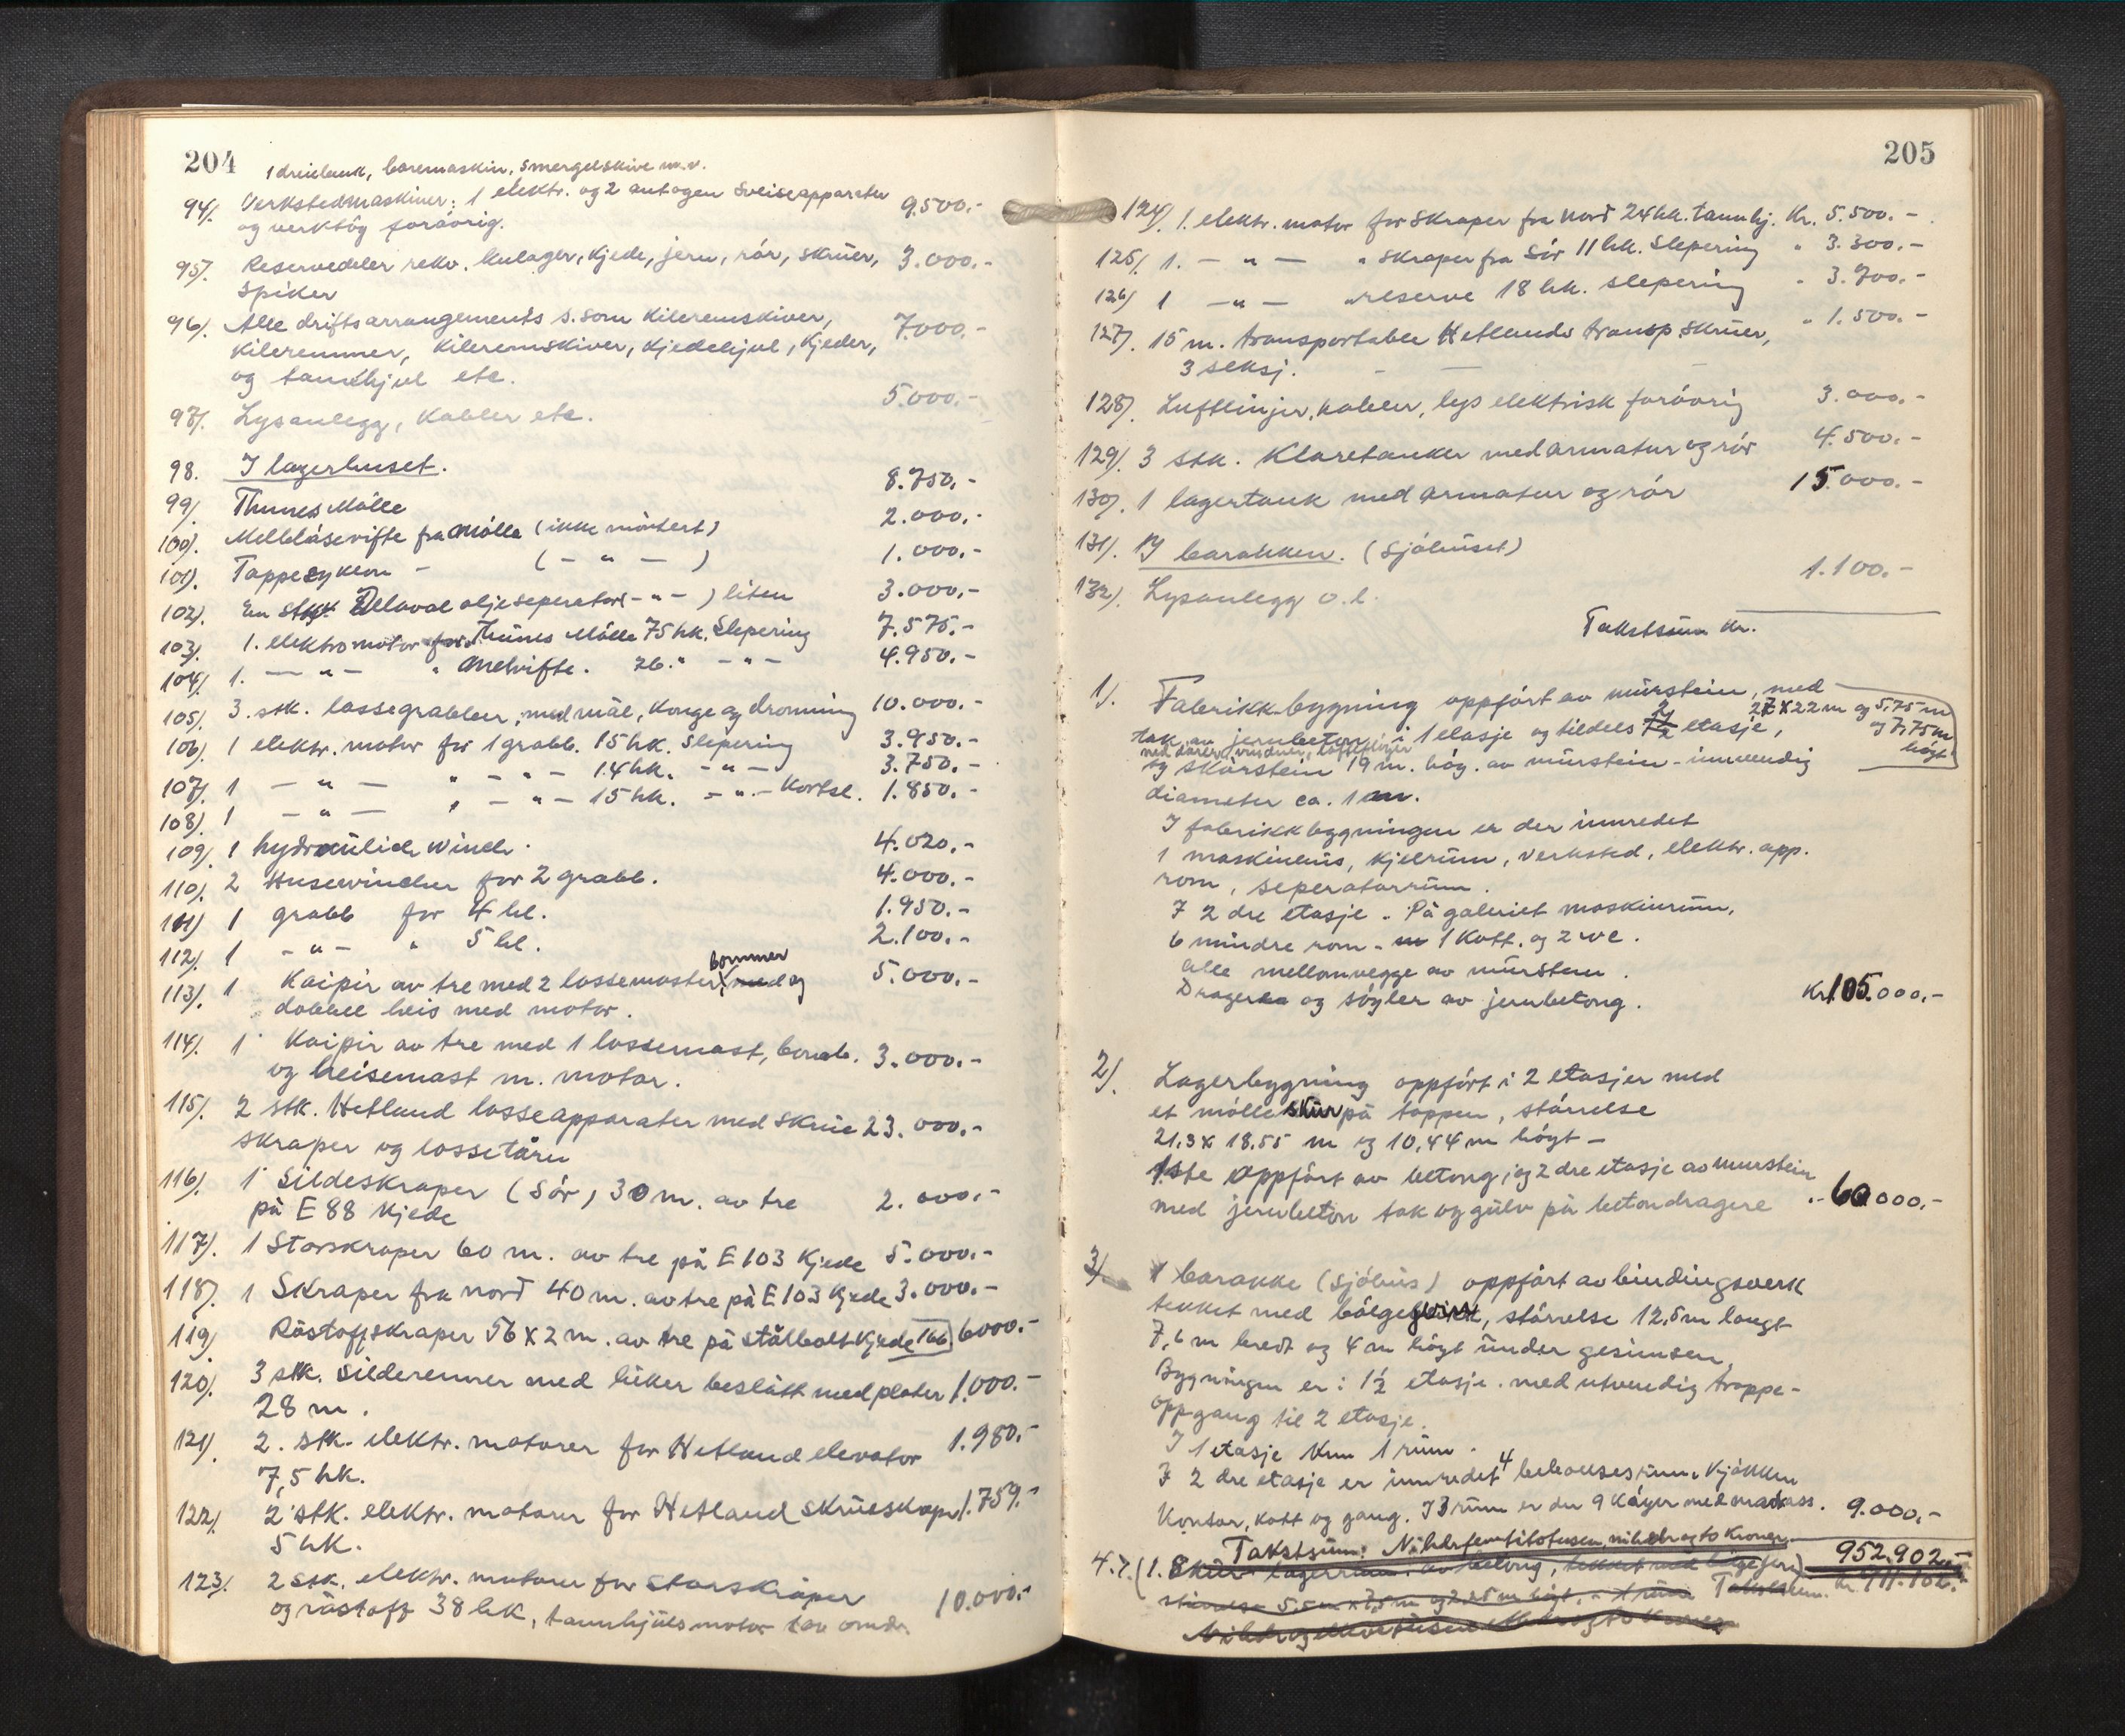 204
1 dreiebenk, boremaskin, smergelskive m.v.
94). Verkstedmaskiner: 1 elektr. og 2 autogen sveiseapparater 9.500.-
og verktøy forøvrig.
95). Reservedeler rekv. kulager, kjede, jern, rör, skruer, 3.000.-
spiker
96). Alle driftsarrangements s.som kileremskiver, 7.000.-
kileremmer, kileremskiver, kjedehjul, kjeder,
og tannhjul etc.
97). Lysanlegg, kabler etc. 5.000.-
98. I lagerhuset.
99). Thunes Mölle 8.750.-
100). Melblåsevifte fra Mölle (ikke möntert) 2.000.-
101). Tappesyklon - ( - " - ) 1.000.-
102). En stk. Delaval oljeseperator (- " -) liten 3.000.-
103). 1. elektromotor for Thunes Mölle 75 hk. Slepering 7.575.-
104). 1. — " — " Melvifte. 26. " - " - 4.950.-
105). 3. stk. lossegrabber, med mål, konge og dronning 10.000.-
106). 1 elektr. motor for 1 grabb. 15 hk. Slepering 3.950.-
107). 1 — " — " - " - 14 hk. - " - 3.750.-
108). 1 — " — " - " - 15 hk. - " - Kortsl. 1.850.-
109). 1 hydraulich winch. 4.020.-
110). 2 Husewincher for 2 grabb. 4.000.-
111) 1 grabb for 4 hl. 1.950.-
112). 1 - " - " 5 hl. 2.100.-
bommer
113). 1 Kaipir av tre med 2 lossemaster, med og 5.000.-
dobbel heis med motor.
114). 1 Kaipir av tre med 1 lossemast, bomb. 3.000.-
og heisemast m. motor.
115). 2 stk. Hetland losseapparater med skrue 23.000.-
skraper og lossetårn
116). 1 Sildeskraper (Sör) 30 m. av tre 2.000.-
på E 88 kjede
117). 1 Storskraper 60 m. av tre på E 103 kjede 5.000.-
118). 1 Skraper fra nord 40 m. av tre på E 103 kjede 3.000.-
119). Råstoffskraper 56 x 2 m. av tre på stålboltkjede 166 6000.-
120). 3 stk. silderenner med luker beslått med plater 1.000.-
28 m.
121). 2. stk. elektr. motorer for Hetland elevator 1.980.-
7,5 hk.
122). 2 stk. elektr. motorer for Hetland skrueskaper 1.759.-
5 hk.
123). 2 stk. elektr. motorer for storskraper
og råstoff 38 hk, tannhjulsmotor 10.000.-
205
124). 1. elektr. motor for skraper fra nord 24 hk. tannhj. Kr. 5.500.-
125). 1. - " - " skraper fra Sör 11 hk. Slepering " 3.300.-
126) 1 - " - " reserve 18 hk. slepering " 3.700.-
127). 15 m. transportable Hetlands transp. skruer, " 1.500.-
3 seksj.
128). Luftlinjer, kabler, lys elektrisk forövrig 3.000.-
129). 3 stk. Klaretanker med armatur og rör 4.500.-
130). 1 lagertank med armatur og rör 15.000.-
131). I barakken. (Sjöhuset)
132). Lysanlegg o.l. 1.100.-
Takstsum kr.
1). Fabrikkbygning oppfört av murstein, med
27 x 22 m og 5.75 m og 7,75 m högt
tak av jernbeton i 1 etasje og tildels 2 etasje,
med dörer, vinduer,
og skorstein 19 m. höy. av murstein - innvendig
diameter ca. 1 m.
I fabrikkbygningen er der innredet
1 maskinhus, kjelrum, verksted, elektr. app.
rom, seperatorrum.
I 2 dre etasje. På galeriet maskinrum,
6 mindre rom - 1 kott. og 2 wc.
Alle mellomvegge av murstein.
Dragere og söyler av jernbetong. Kr. 105.000.-
2). Lagerbygning oppfört i 2 etasjer med
et mölleskur på toppen, störrelse
21.3 x 18.55 m og 10,44 m höyt -
1ste oppfört av betong, og 2 dre etasje av murstein
med jernbeton tak og gulv på betondragere " 60000.-
3) 1 barakke (sjöhus) oppfört av bindingsverk
tekket med bölgeblikk, störrelse 12.5 m langt
7,6 m bredt og 4 m högt under gesimsen,
Bygningen er i 1½ etasje. med utvendig trappe-
oppgang til 2 etasje.
I 1 etasje kun 1 rum.
I 2 dre etasje er innredet 4 beboelsesrum, kjökken
Kontor, kott og gang. I 3 rum er der 9 köyer med madrass. 9.000.-
Takstsum: Nihdrfemtitotusen nihdrogto kroner. 952.902.-
4.). (1. Skur lagerrum. av betong, tekket med bölgejern) Takstsum. kr. 911.102.-
störrelse 5.5 m x 7,5 m og 2.25 m högt. - 1 rum